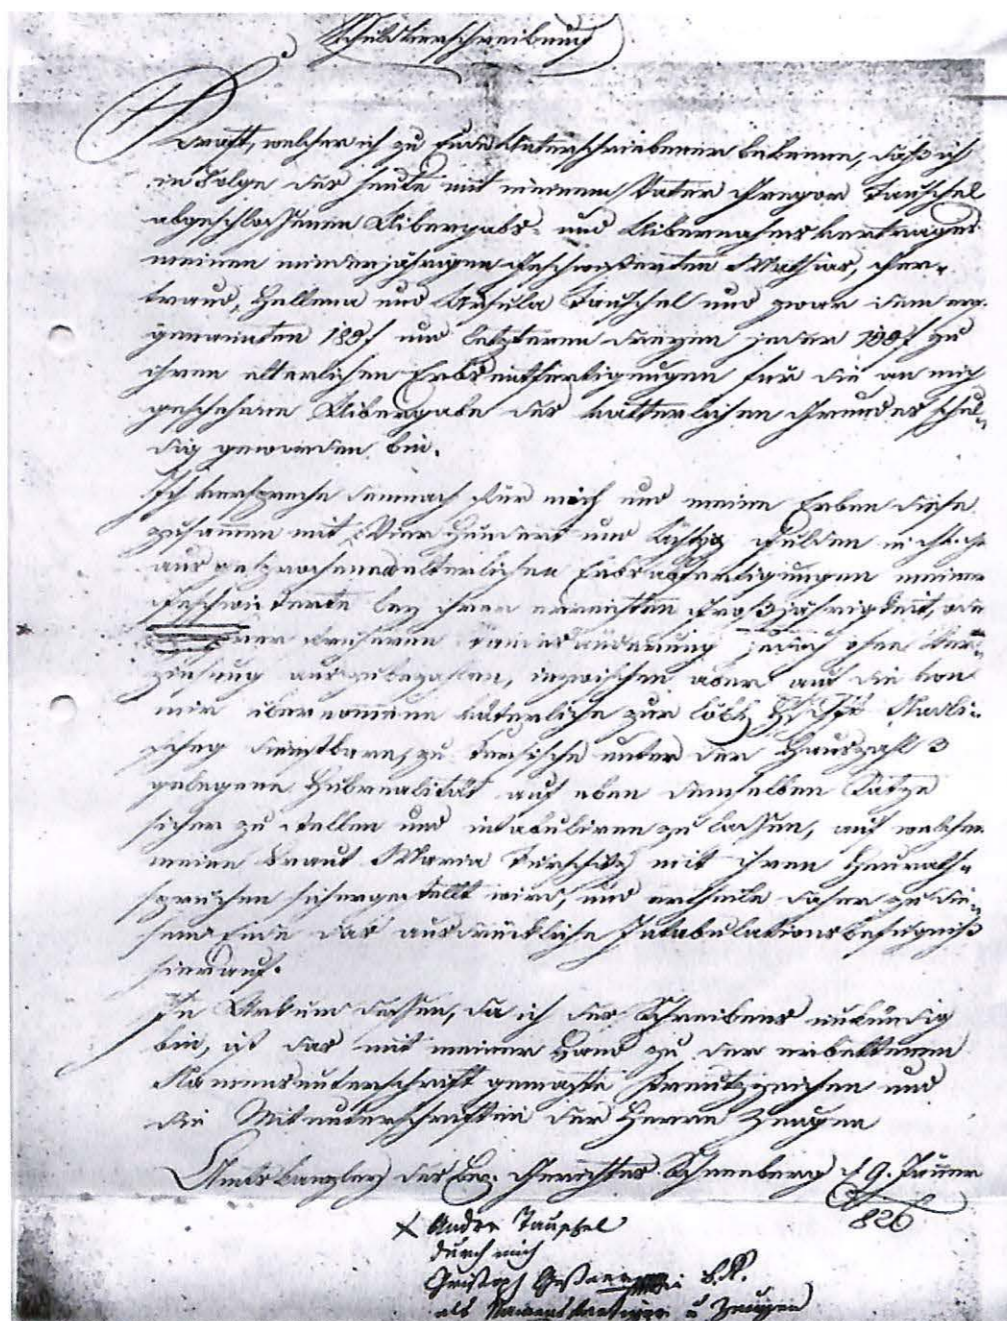 Schuldverschreibung
Kraft, welcher ich zu Ende Unterschriebener bekenne, daß ich
in Folge des heute mit meinem Vater Gregor Tauschel
abgeschlossenen Übergabs- und Übernahms Vertrages
meinen minderjährigen Geschwisterten Mathias, Ger-
traud, Hellena und Ursula Tauschel und zwar dem erst
genannten und letzteren dreyen jeder 100 f zu
ihren elterlichen Erbsentfertigungen für die an mich
geschehene Übergabe des vätterlichen Grundes schul-
dig geworden bin.
Ich verspreche demnach für mich und meine Erben diese
zusammen mit Vier Hundert und Gulden in
ausgesprochenen elterlichen Erbsabfertigungen meiner
Geschwisterte bey ihrer erreichten Großjährigkeit, oder
früheren Standesänderung jedoch ohne Ver-
zinsung auszubezahlen, inzwischen aber auf die von
mir übernommene väterliche zur löbl.
dienstbare, zu unter der Hauszahl 3
gelegene Hubrealität auf eben demselben Satze
sicher zu stellen und intabuliren zu lassen, auf welchem
meine Braut Maria mit ihren Heuraths-
sprüchen sichergestellt wird, und ertheile daher zu die-
sem Ende das ausdrückliche Intabulationsbefugniß
hierauf.
In Urkund dessen, da ich des Schreibens unkündig
bin, ist das mit meiner Hand zu der erbettenen
Namensunterschrift gemachte Kreutzzeichen und
die Mitunterschriften der Herrn Zeugen
Amtskanzley des Bez. Gerichtes Schneeberg d 9. Jänner
826
X Andre Tauschel
durch mich
Christoph
als Namensfertiger u Zeugen